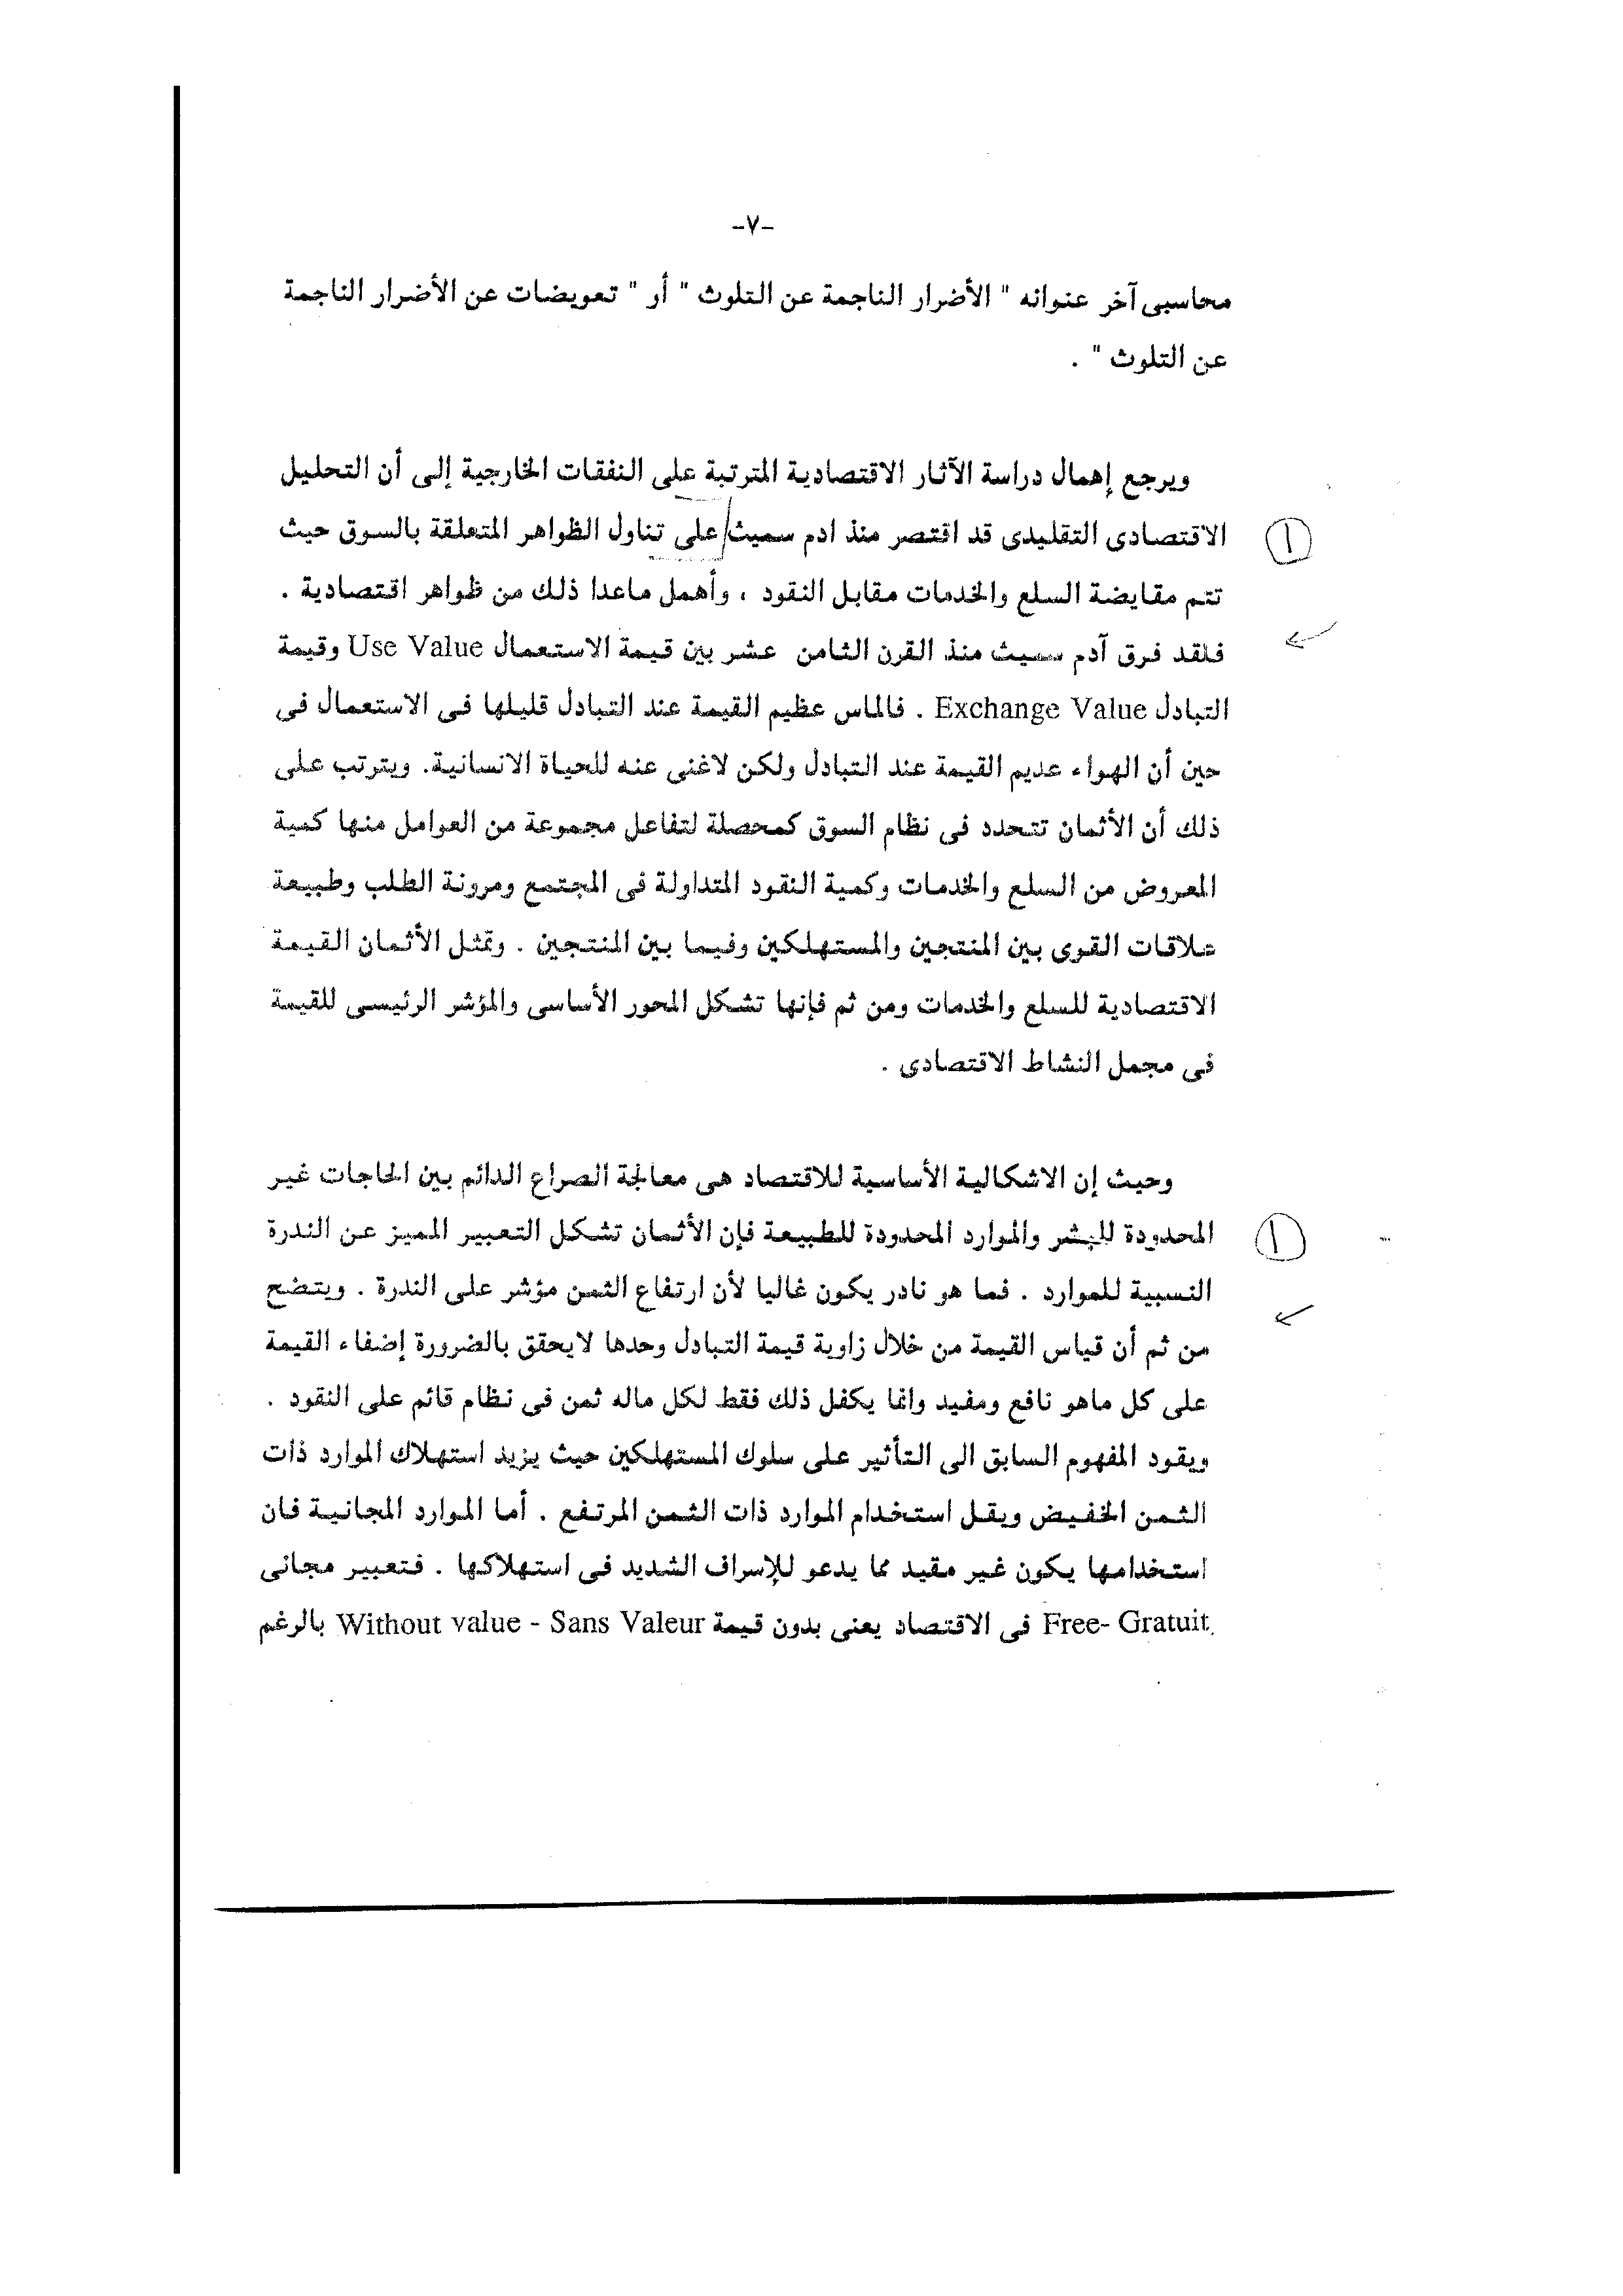 -٧-
محاسبى آخر عنوانه " الأضرار الناجمة عن التلوث " أو " تعويضات عن الأضرار الناجمة
عن التلوث " .
ويرجع إهمال دراسة الآثار الاقتصادية المترتبة على النفقات الخارجية إلى أن التحليل
الاقتصادى التقليدى قد اقتصر منذ ادم سميث/على تناول الظواهر المتعلقة بالسوق حيث
١
تتم مقايضة السلع والخدمات مقابل النقود ، وأهمل ماعدا ذلك من ظواهر اقتصادية .
فلقد فرق آدم سميث منذ القرن الثامن عشر بين قيمة الاستعمال Use Value وقيمة
التبادل Exchange Value . فالماس عظيم القيمة عند التبادل قليلها فى الاستعمال فى
حين أن الهواء عديم القيمة عند التبادل ولكن لاغنى عنه للحياة الانسانية. ويترتب على
ذلك أن الأثمان تتحدد فى نظام السوق كمحصلة لتفاعل مجموعة من العوامل منها كمية
المعروض من السلع والخدمات وكمية النقود المتداولة فى المجتمع ومرونة الطلب وطبيعة
علاقات القوى بين المنتجين والمستهلكين وفيما بين المنتجين . وتمثل الأثمان القيمة
الاقتصادية للسلع والخدمات ومن ثم فإنها تشكل المحور الأساسى والمؤشر الرئيسى للقيمة
فى مجمل النشاط الاقتصادى .
وحيث إن الاشكالية الأساسية للاقتصاد هى معالجة الصراع الدائم بين الحاجات غير
المحدودة للبشر والموارد المحدودة للطبيعة فإن الأثمان تشكل التعبير المميز عن الندرة
١
النسبية للموارد . فما هو نادر يكون غاليا لأن ارتفاع الثمن مؤشر على الندرة . ويتضح
من ثم أن قياس القيمة من خلال زاوية قيمة التبادل وحدها لايحقق بالضرورة إضفاء القيمة
على كل ماهو نافع ومفيد وانما يكفل ذلك فقط لكل ماله ثمن فى نظام قائم على النقود .
ويقود المفهوم السابق الى التأثير على سلوك المستهلكين حيث يزيد استهلاك الموارد ذات
الثمن الخفيض ويقل استخدام الموارد ذات الثمن المرتفع . أما الموارد المجانية فان
استخدامها يكون غير مقيد مما يدعو للإسراف الشديد فى استهلاكها . فتعبير مجانى
Free- Gratuit فى الاقتصاد يعنى بدون قيمة Without value - Sans Valeur بالرغم